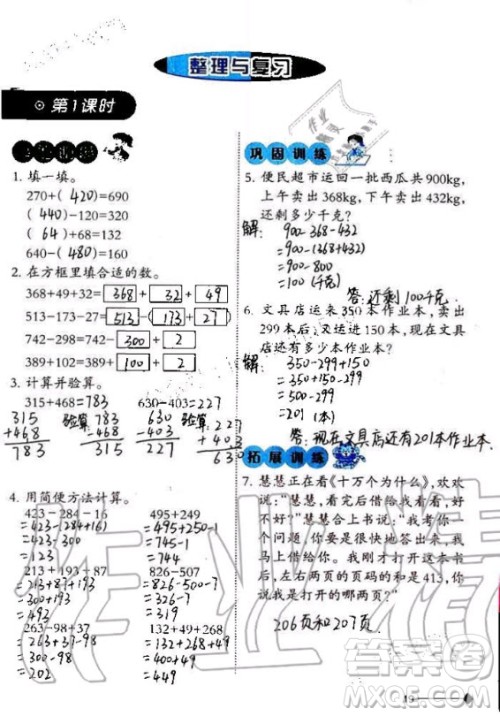 整理与复习
第1课时
1. 填一填。
270+( 420 )=690
( 440 )-120=320
( 64 )+68=132
640-( 480 )=160
2. 在方框里填合适的数。
368+49+32=368+32+49
513-173-27=513-(173+27)
742-298=742-300+2
389+102=389+100+2
3. 计算并验算。
315+468=783 630-403=227
315 验算: 783 630 验算: 227
+468 -468 -403 +403
783 315 227 630
4. 用简便方法计算。
423-284-16 495+249
=423-(284+16) =495+250-1
=423-300 =745-1
=123 =744
213+193+87 826-507
=213+87+193 =826-500-7
=300+193 =326-7
=493 =319
263-98+37 132+49+268
=263+37-98 =132+268+49
=300-98 =400+49
=202 =449
巩固训练
5. 便民超市运回一批西瓜共900kg,
上午卖出368kg,下午卖出432kg,
还剩多少千克?
解: 900-368-432
=900-(368+432)
=900-800
=100(千克)
答:还剩100千克.
6. 文具店运来350本作业本,卖出
299本后,又运进150本,现在文具
店还有多少本作业本?
解: 350-299+150
=350+150-299
=500-299
=201(本)
答:现在文具店还有201本作业本.
拓展训练
7. 慧慧正在看《十万个为什么》,欢欢
说:“慧慧,慧慧,借给我看一看,好
不好?”慧慧合上书说:“我考你一
个问题,你要是很快地答出来,我
马上借给你。我刚才打开这本书
后,左右两页的页码的和是413,你
说我是打开的哪两页?”
206页和207页.
作业精灵
答案圈
MXQE.COM
19